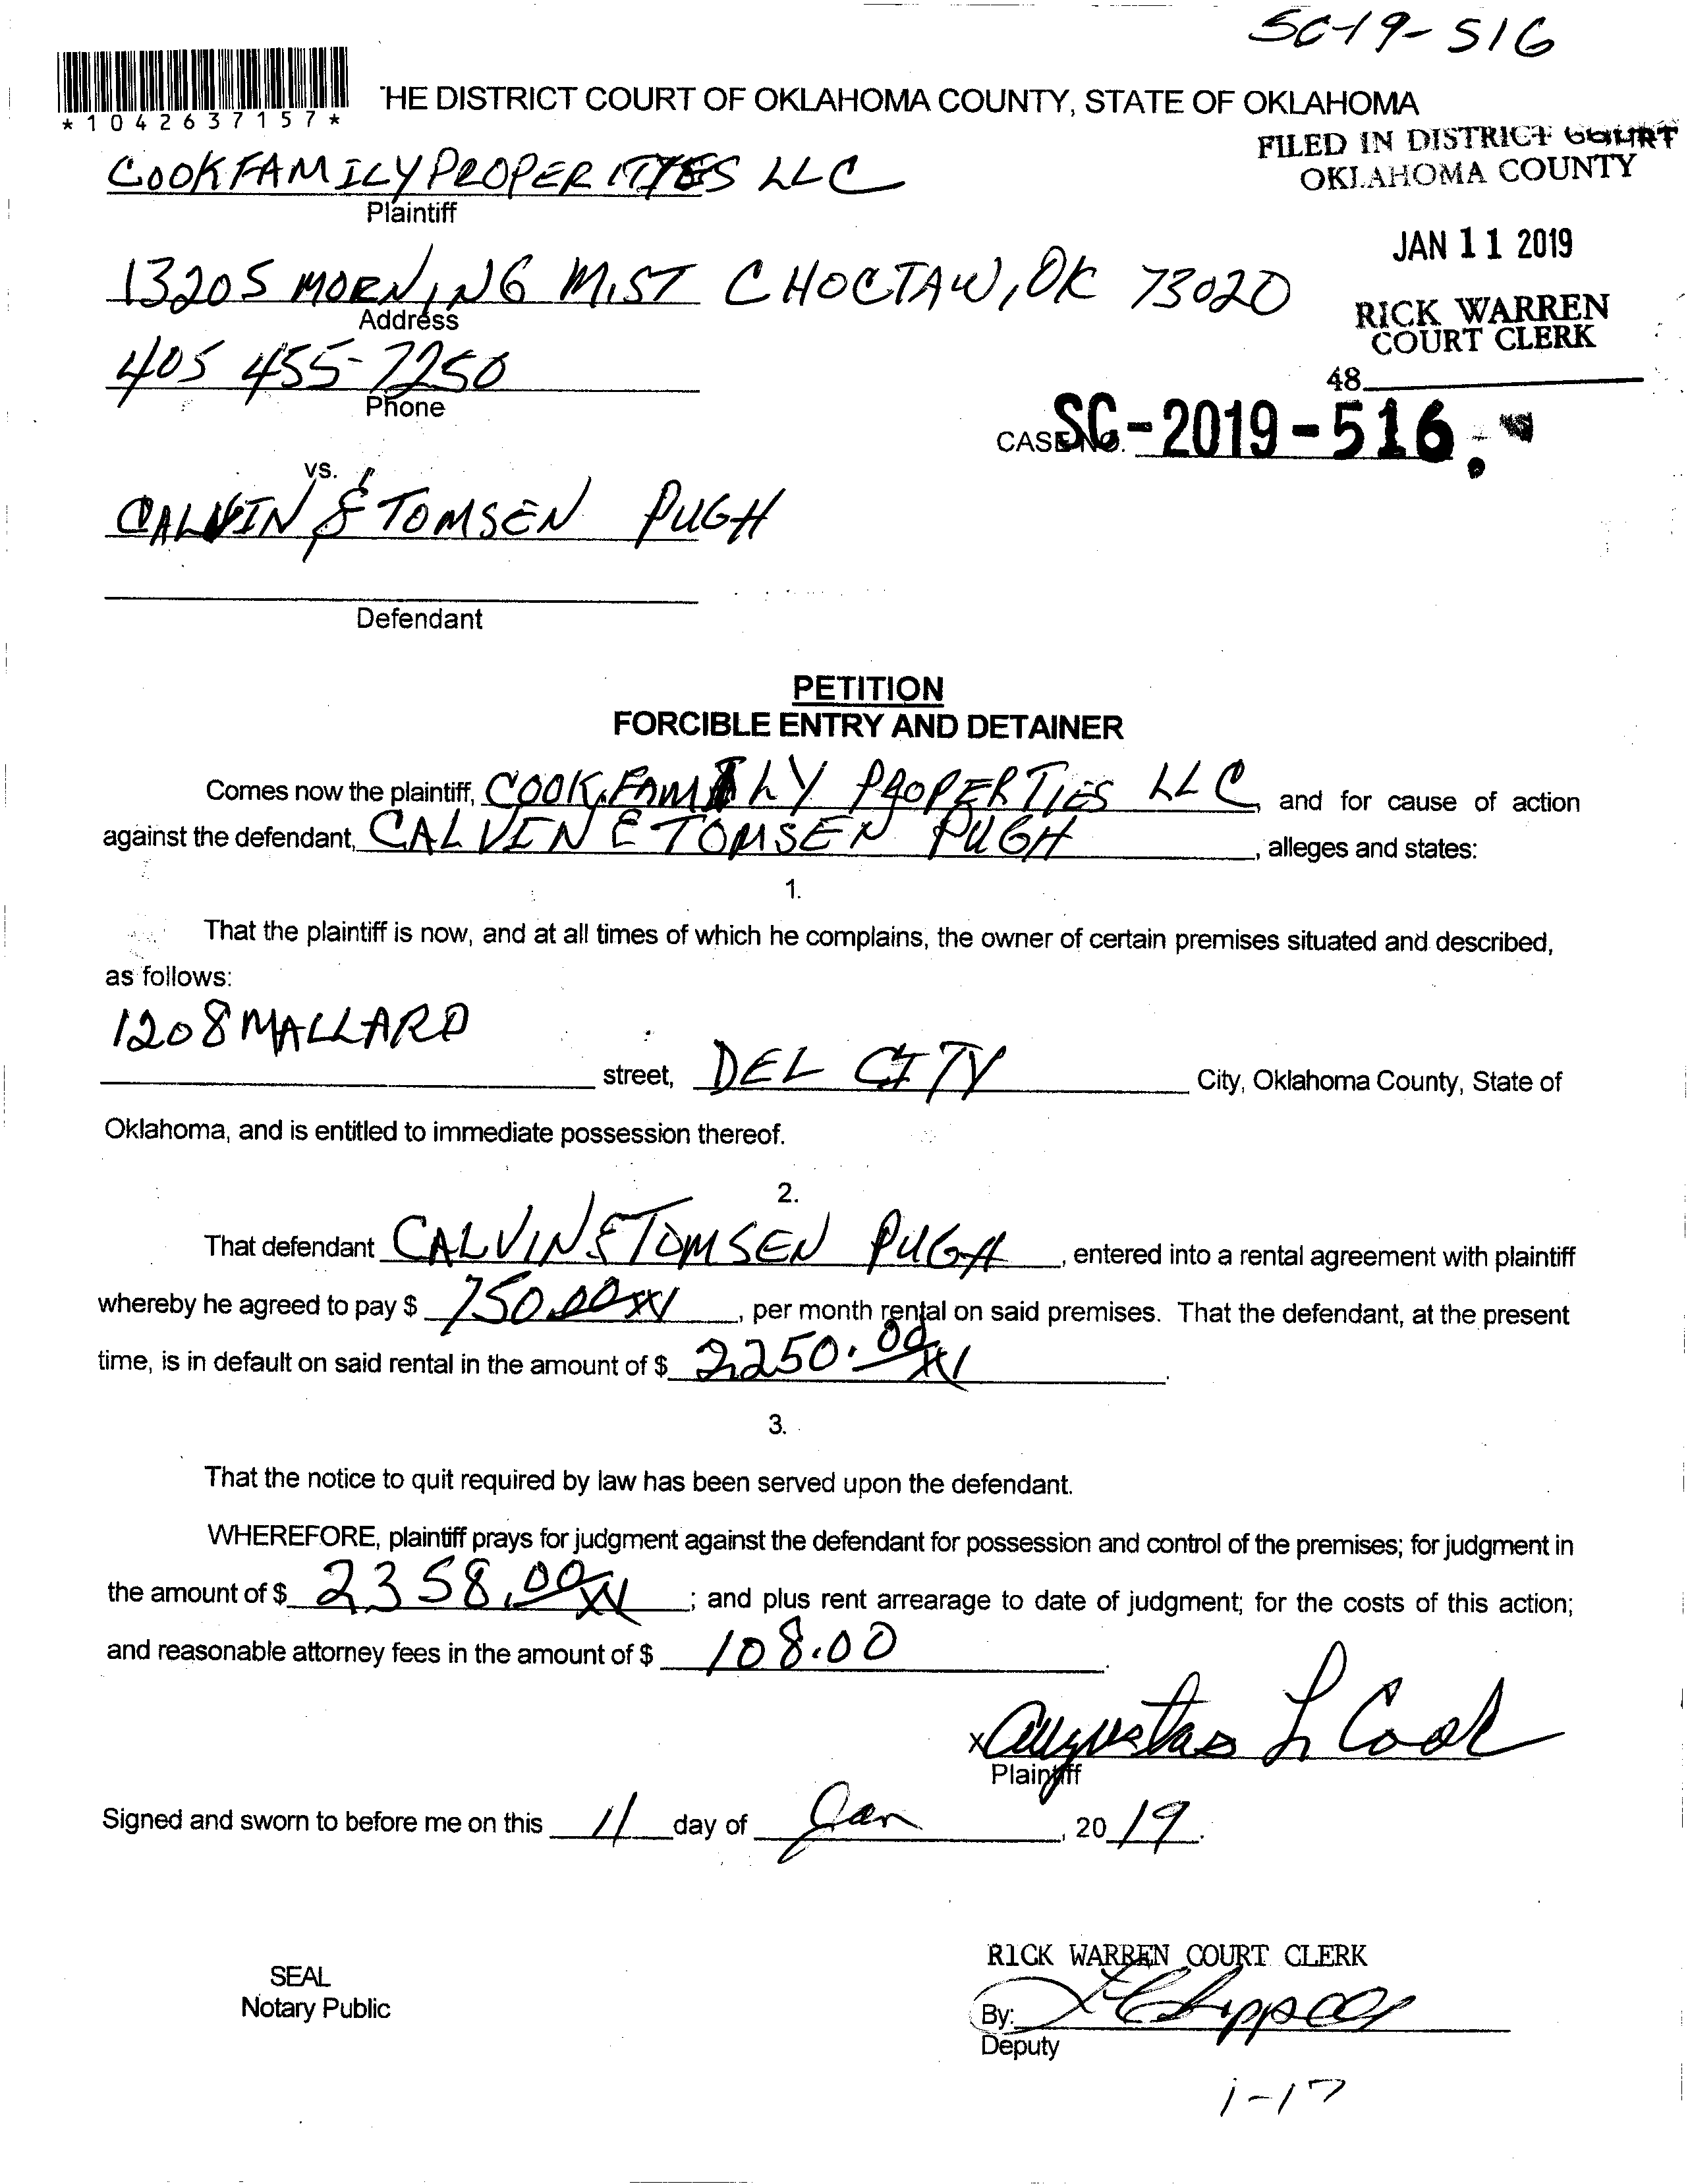 SC-19-516
*1042637157*
THE DISTRICT COURT OF OKLAHOMA COUNTY, STATE OF OKLAHOMA
FILED IN DISTRICT COURT
OKLAHOMA COUNTY
COOK FAMILY PROPERITYES LLC
Plaintiff
JAN 11 2019
13205 MORNING MIST CHOCTAW, OK 73020
Address
RICK WARREN
COURT CLERK
405 455-7250
Phone
48
CASE NO. SC-2019-516
vs.
CALVIN & TOMSEN PUGH
Defendant
PETITION
FORCIBLE ENTRY AND DETAINER
Comes now the plaintiff, COOK FAMILY PROPERTIES LLC, and for cause of action
against the defendant, CALVIN & TOMSEN PUGH, alleges and states:
1.
That the plaintiff is now, and at all times of which he complains, the owner of certain premises situated and described,
as follows:
1208 MALLARD
street, DEL CITY City, Oklahoma County, State of
Oklahoma, and is entitled to immediate possession thereof.
2.
That defendant CALVIN & TOMSEN PUGH, entered into a rental agreement with plaintiff
whereby he agreed to pay $ 750.00, per month rental on said premises. That the defendant, at the present
time, is in default on said rental in the amount of $ 2250.00.
3.
That the notice to quit required by law has been served upon the defendant.
WHEREFORE, plaintiff prays for judgment against the defendant for possession and control of the premises; for judgment in
the amount of $ 2358.00; and plus rent arrearage to date of judgment; for the costs of this action;
and reasonable attorney fees in the amount of $ 108.00.
x Augustas L Cook
Plaintiff
Signed and sworn to before me on this 11 day of Jan, 2019.
RICK WARREN COURT CLERK
SEAL
Notary Public
By:
Deputy
1-17